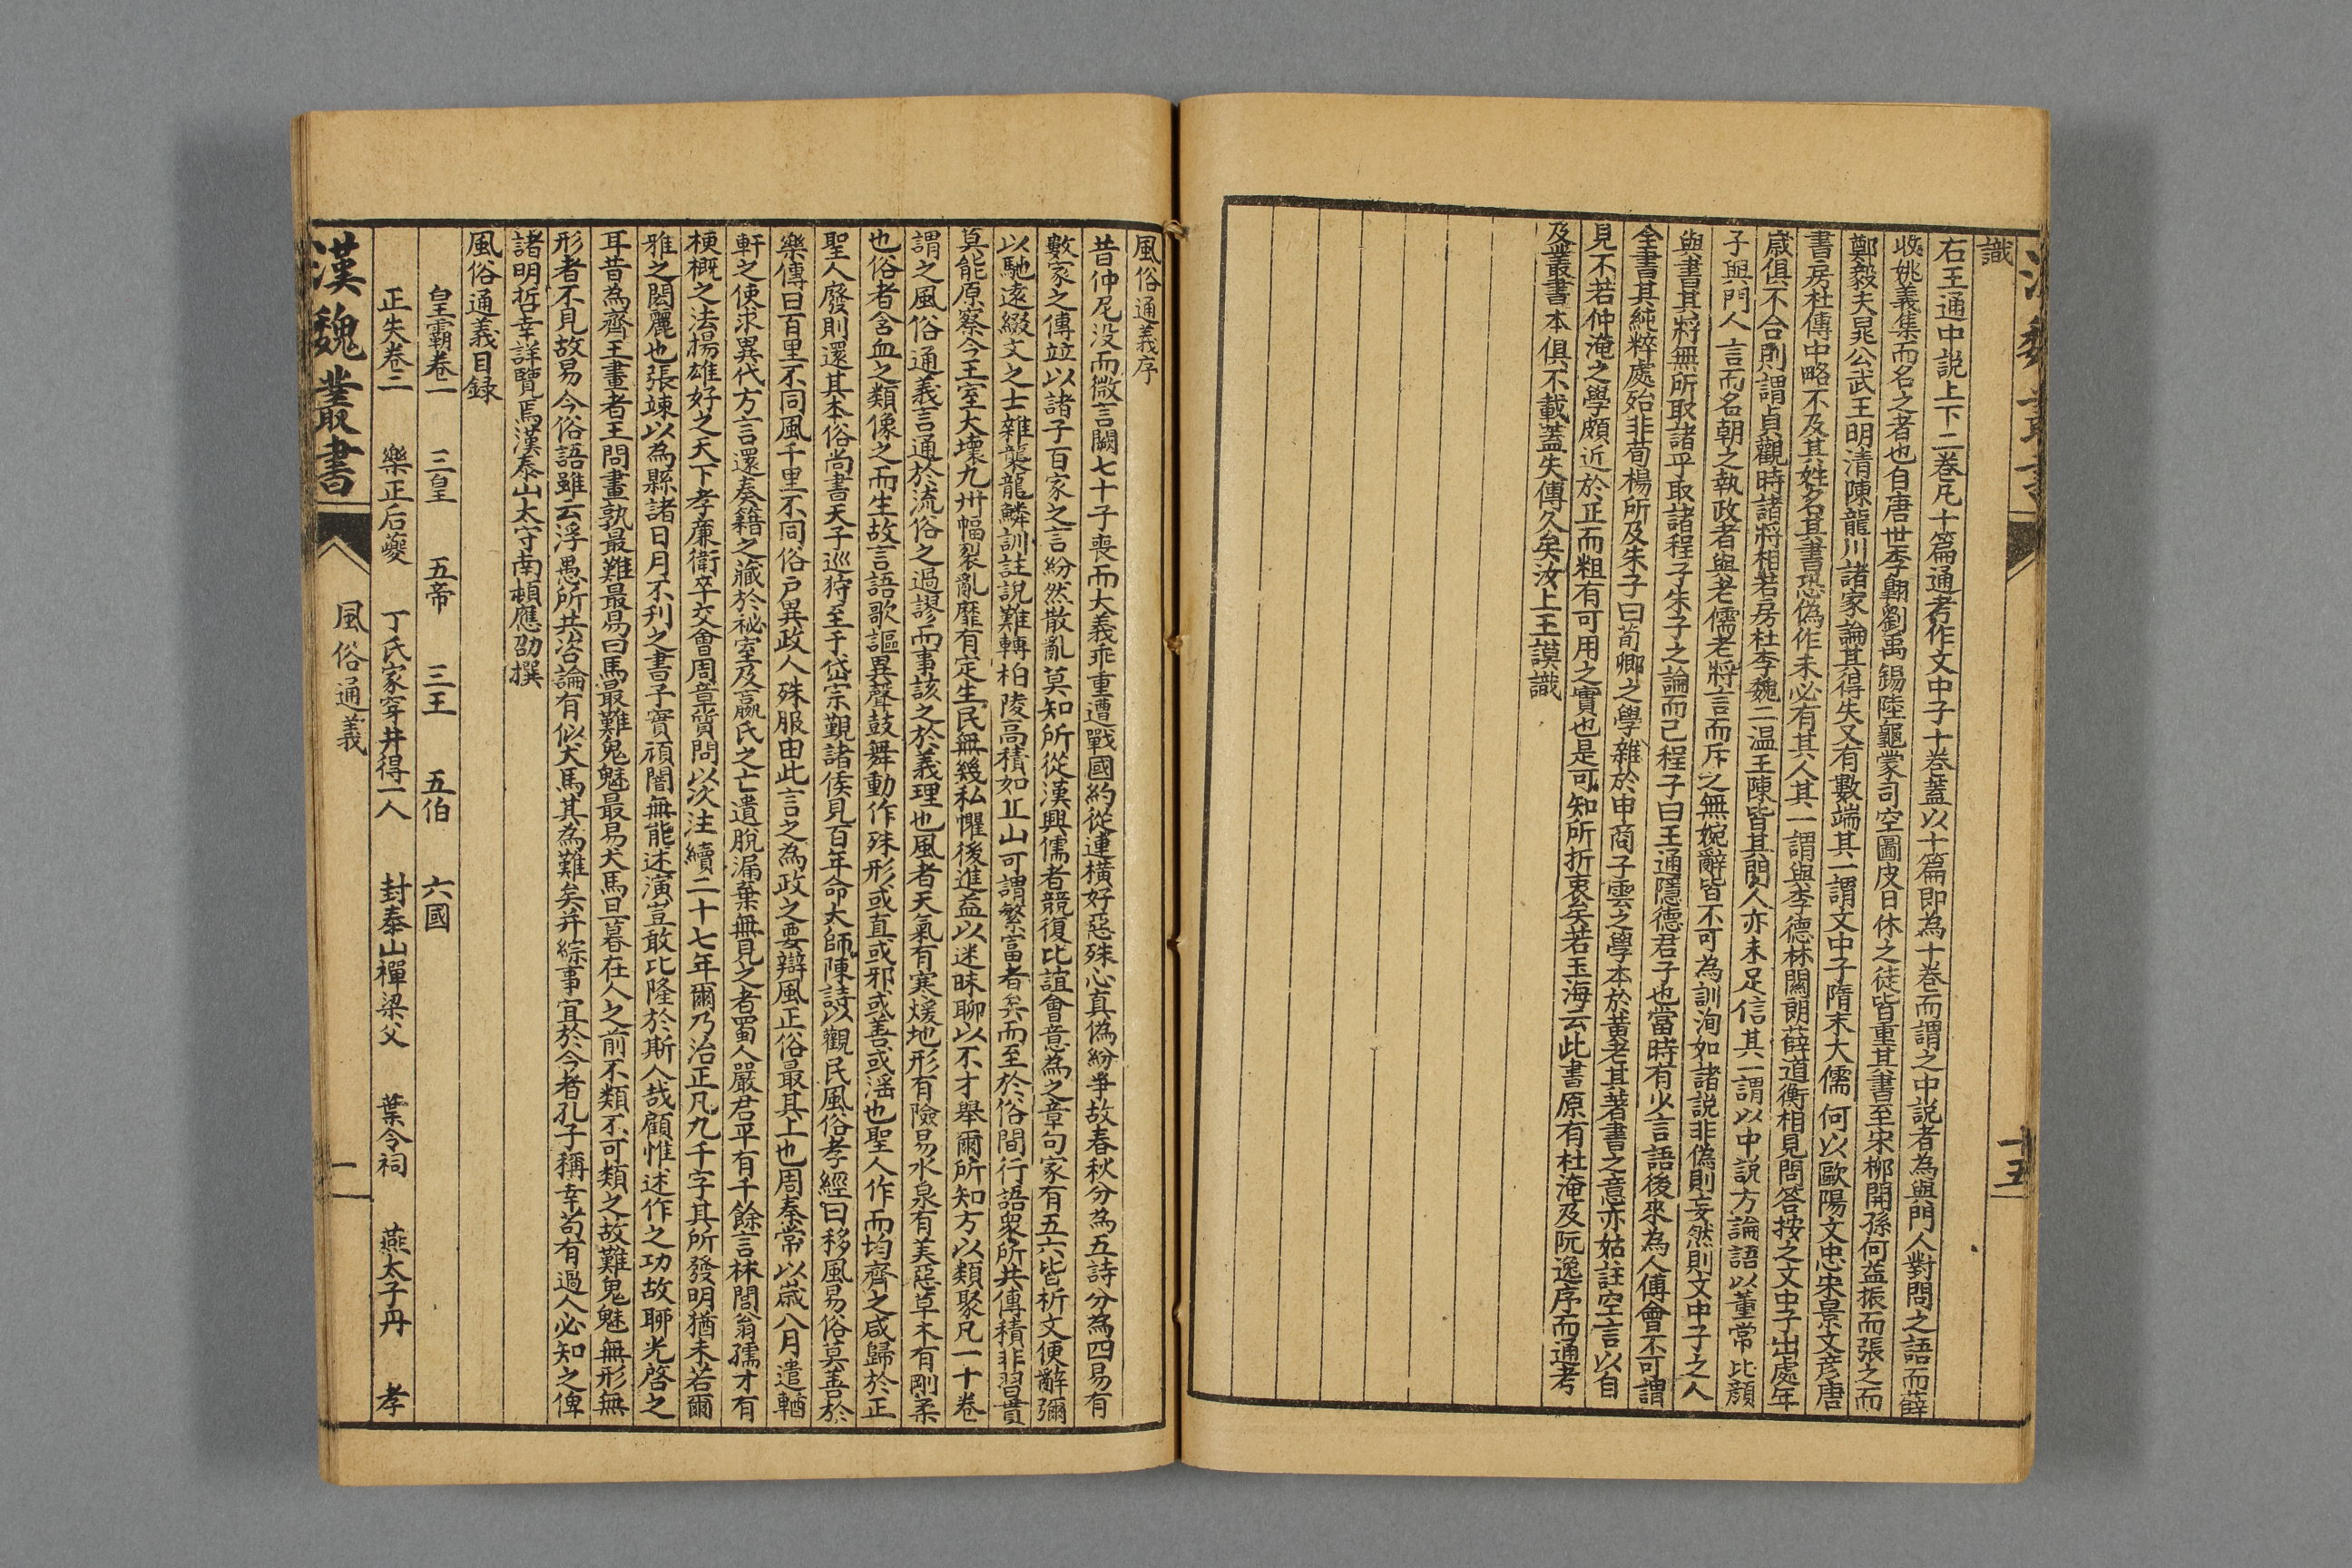 漢魏叢書
十五
識
右王通中說上下二卷凡十篇通考作文中子十卷蓋以十篇即為十卷而謂之中說者為與門人對問之語而薛
收姚義集而名之者也自唐世李翺劉禹錫陸龜蒙司空圖皮日休之徒皆重其書至宋柳開孫何益振而張之而
鄭毅夫晁公武王明清陳龍川諸家論其得失又有數端其一謂文中子隋末大儒何以歐陽文忠宋景文彥唐
書房杜傳中略不及其姓名其書恐偽作未必有其人其一謂與李德林關朗薛道衡相見問答按之文中子出處年
歲俱不合則謂貞觀時諸將相若房杜李魏二温王陳皆其門人亦未足信其一謂以中說方論語以董常比顏
子與門人言而名朝之執政者與老儒老將言而斥之無婉辭皆不可為訓洵如諸說非偽則妄然則文中子之人
與書其將無所取諸乎取諸程子朱子之論而已程子曰王通隱德君子也當時有少言語後來為人傅會不可謂
全書其純粹處殆非荀楊所及朱子曰荀卿之學雜於申商子雲之學本於黃老其著書之意亦姑註空言以自
見不若仲淹之學頗近於正而粗有可用之實也是可知所折衷矣若玉海云此書原有杜淹及阮逸序而通考
及叢書本俱不載蓋失傳久矣汝上王謨識
風俗通義序
昔仲尼没而微言闕七十子喪而大義乖重遭戰國約從連橫好惡殊心真偽紛爭故春秋分為五詩分為四易有
數家之傳竝以諸子百家之言紛然散亂莫知所從漢興儒者競復比誼會意為之章句家有五六皆析文便辭彌
以馳遠綴文之士雜襲龍鱗訓註說難轉相陵高積如丘山可謂繁富者矣而至於俗間行語衆所共傳積非習貫
莫能原察今王室大壞九州幅裂亂靡有定生民無幾私懼後進益以迷昧聊以不才舉爾所知方以類聚凡一十卷
謂之風俗通義言通於流俗之過謬而事該之於義理也風者天氣有寒煖地形有險易水泉有美惡草木有剛柔
也俗者含血之類像之而生故言語歌謳異聲鼓舞動作殊形或直或邪或善或滛也聖人作而均齊之咸歸於正
聖人廢則還其本俗尚書天子巡狩至于岱宗覲諸侯見百年命大師陳詩以觀民風俗孝經曰移風易俗莫善於
樂傳曰百里不同風千里不同俗户異政人殊服由此言之為政之要辯風正俗最其上也周秦常以歲八月遣輶
軒之使求異代方言還奏籍之藏於祕室及嬴氏之亡遺脫漏棄無見之者蜀人嚴君平有千餘言林閭翁孺才有
梗概之法揚雄好之天下孝廉衛卒交會周章質問以次注續二十七年爾乃治正凡九千字其所發明猶未若爾
雅之閎麗也張竦以為縣諸日月不刊之書予實頑闇無能述演豈敢比隆於斯人哉顧惟述作之功故聊光啓之
耳昔為齊王畫者王問畫孰最難最易曰犬馬最難鬼魅最易犬馬旦暮在人之前不類不可類之故難鬼魅無形無
形者不見故易今俗語雖云浮愚所共咨論有似犬馬其為難矣并綜事宜於今者孔子稱幸苟有過人必知之俾
諸明哲幸詳覽焉漢泰山太守南頓應劭撰
風俗通義目録
皇霸卷一 三皇 五帝 三王 五伯 六國
正失卷二 樂正后夔 丁氏家穿井得一人 封泰山禪梁父 葉令祠 燕太子丹 孝
漢魏叢書
風俗通義
一